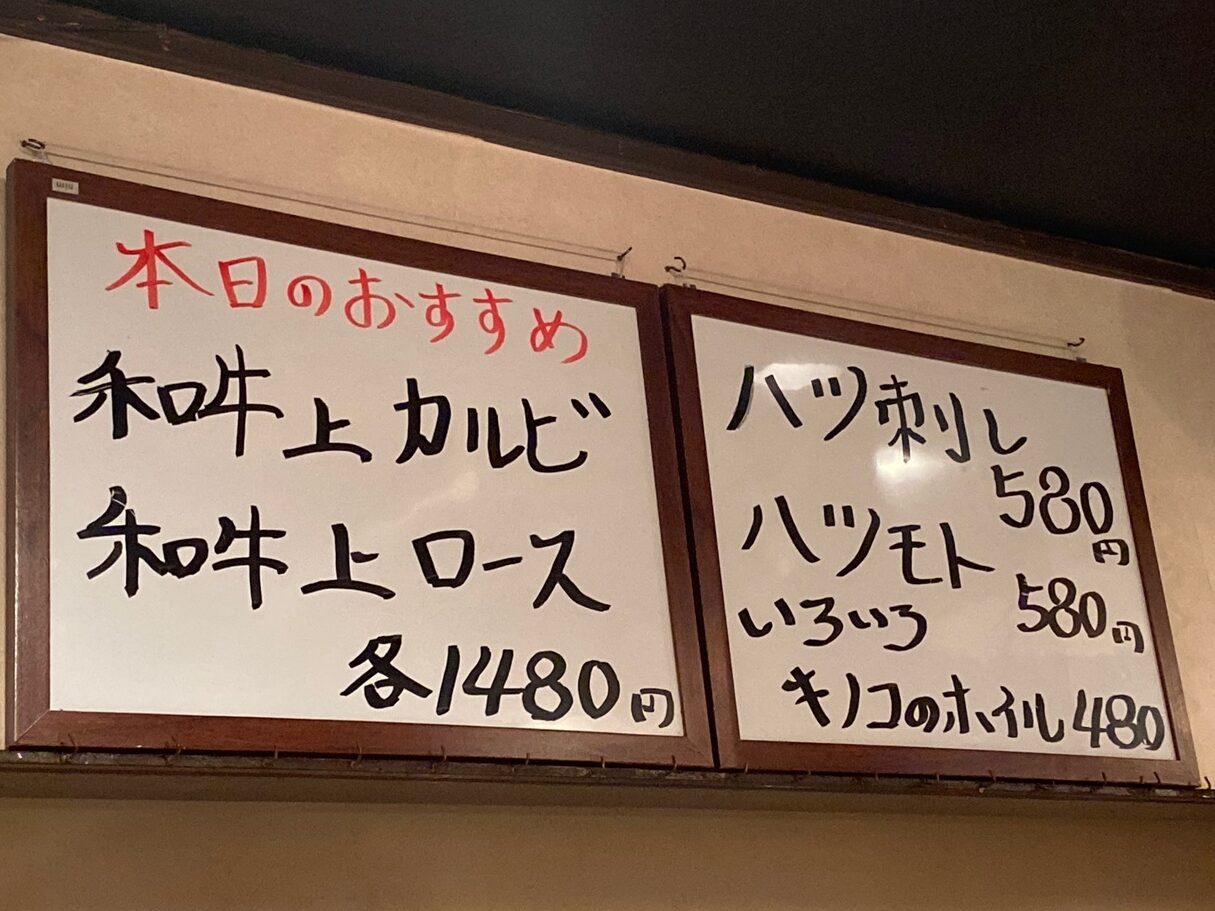 本日のおすすめ
和牛上カルビ
和牛上ロース
各1480円
ハツ刺し
580円
ハツモト
580円
いろいろ
キノコのホイル480